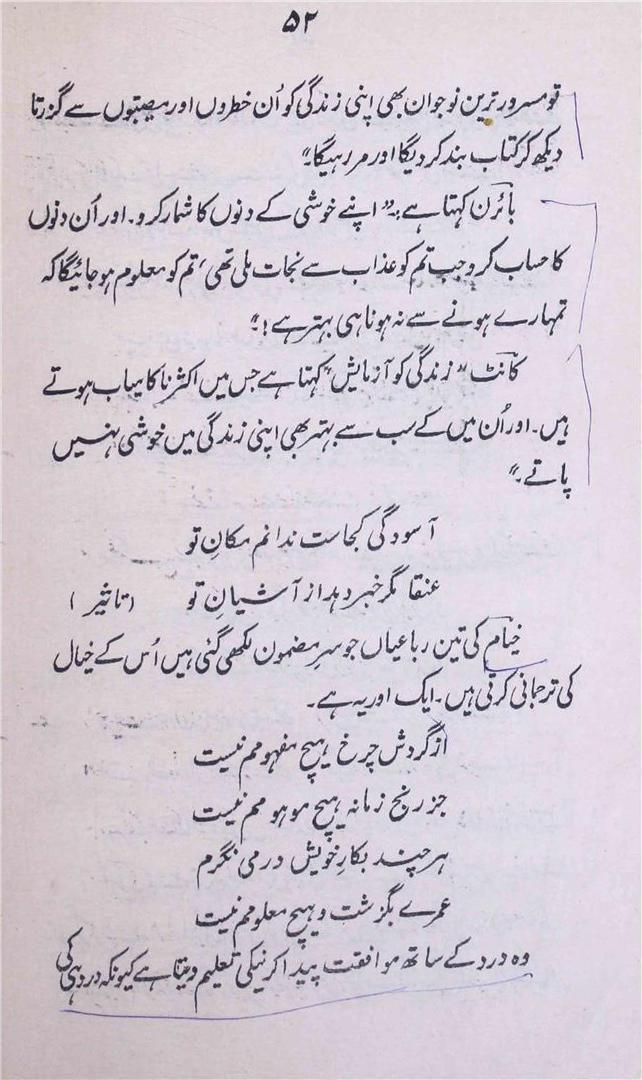 ۵۲
تو مسرور ترین نوجوان بھی اپنی زندگی کو اُن خطروں اور مصیبتوں سے گزرتا
دیکھ کر کتاب بند کر دیگا اور مر رہیگا۔"
بائرن کہتا ہے:۔" اپنے خوشی کے دنوں کا شمار کرو۔ اور اُن دنوں
کا حساب کرو جب تم کو عذاب سے نجات ملی تھی، تم کو معلوم ہو جائیگا کہ
تمہارے ہونے سے نہ ہونا ہی بہتر ہے!۔"
کانٹ "زندگی کو آزمایش" کہتا ہے جس میں اکثر ناکامیاب ہوتے
ہیں۔ اور اُن میں کے سب سے بہتر بھی اپنی زندگی میں خوشی نہیں
پاتے۔"
آسودگی کجاست ندانم مکانِ تو
عنقا مگر خبر دہد از آشیانِ تو (تاثیر)
خیام کی تین رباعیاں جو سرِ مضمون لکھی گئی ہیں اُس کے خیال
کی ترجمانی کرتی ہیں۔ ایک اور یہ ہے۔
از گردش چرخ ہیچ مفہومم نیست
جز رنج زمانہ ہیچ موہومم نیست
ہر چند بکارِ خویش در می نگرم
عمرے بگزشت و ہیچ معلومم نیست
وہ درد کے ساتھ موافقت پیدا کرنیکی تعلیم دیتا ہے کیونکہ درد ہی کی